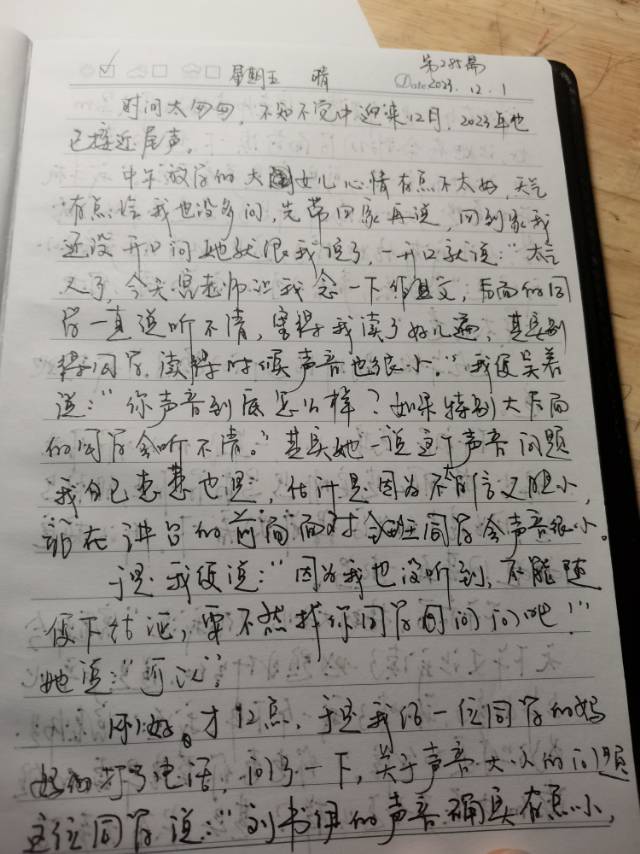 第285篇
星期五 晴 Date 2023.12.1
时间太匆匆,不知不觉中迎来12月,2023年也
已接近尾声。
中午放学的大闺女儿心情有点不太好,天气
有点冷我也没多问,先带回家再说,回到家我
还没开口问她就跟我说了,一开口就说:“太气
人了,今天窦老师让我念一下作文,后面的同
学一直说听不清,害得我读了好几遍,其实别
得同学读得时候声音也很小。”我便笑着
说:“你声音到底怎么样?如果特别大后面
的同学会听不清。”其实她一说这个声音问题
我自己想想也是,估计是因为不自信又胆小,
站在讲台的前面面对全班同学会声音很小。
于是我便说:“因为我也没听到,不能随
便下结论,要不然找你同学问问吧!”
她说:“可以”
刚好才12点,于是我给一位同学的妈
妈打了电话,问了一下,关于声音大小的问题
这位同学说:“刘书伊的声音确实有点小,